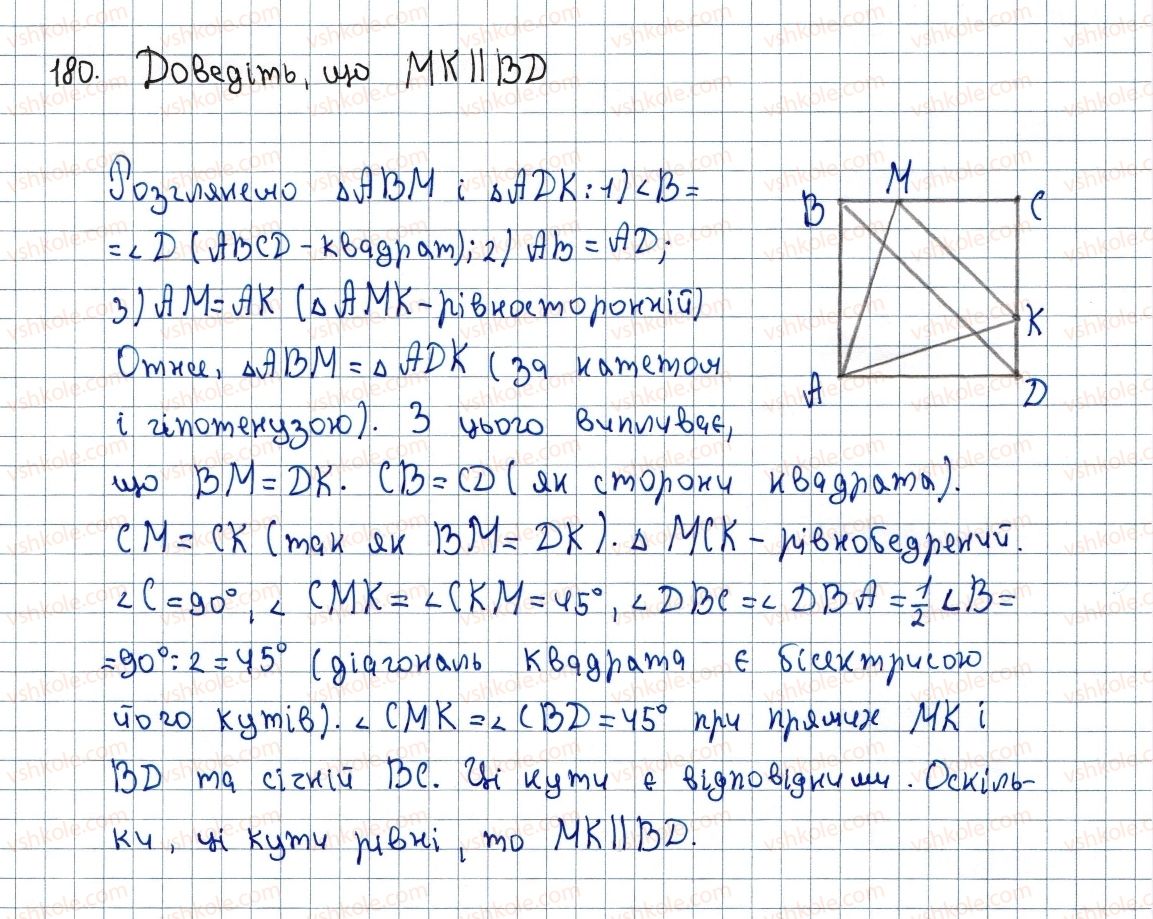 180. Доведіть, що MK||BD
Розглянемо ▵ABM і ▵ADK: 1) ∠B =
= ∠D (ABCD - квадрат); 2) AB = AD;
3) AM = AK (▵AMK - рівносторонній)
Отже, ▵ABM = ▵ADK (за катетом
і гіпотенузою). З цього випливає,
що BM = DK. CB = CD (як сторони квадрата).
CM = CK (так як BM = DK). ▵MCK - рівнобедрений.
∠C = 90°, ∠CMK = ∠CKM = 45°, ∠DBC = ∠DBA = 1/2 ∠B =
= 90° : 2 = 45° (діагональ квадрата є бісектрисою
його кутів). ∠CMK = ∠CBD = 45° при прямих MK і
BD та січній BC. Ці кути є відповідними. Оскіль-
ки, ці кути рівні, то MK||BD.
B M C
K
A D
vshkole.com